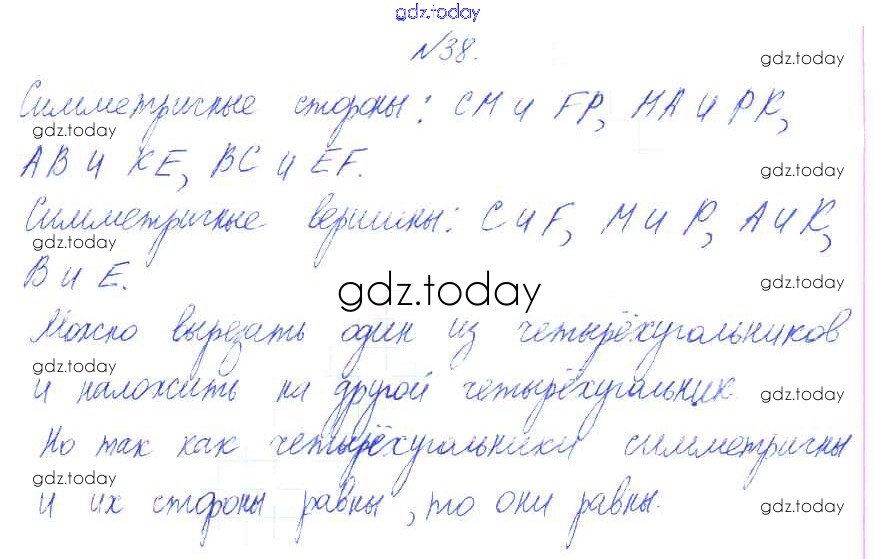 gdz.today
№38.
gdz.today
Симметричные стороны: CM и FP, MA и PK,
gdz.today
AB и KE, BC и EF.
gdz.today
Симметричные вершины: C и F, M и P, A и K,
gdz.today
gdz.today
B и E.
gdz.today
gdz.today
Можно вырезать один из четырёхугольников
gdz.today
и наложить на другой четырёхугольник.
gdz.today
Но так как четырёхугольники симметричны
gdz.today
и их стороны равны, то они равны.
gdz.today